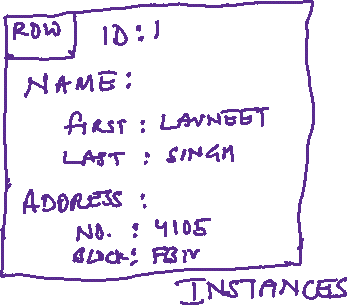 ROW ID:1
NAME:
FIRST : LAVNEET
LAST : SINGH
ADDRESS :
NO. : 4105
BLOCK:
INSTANCES